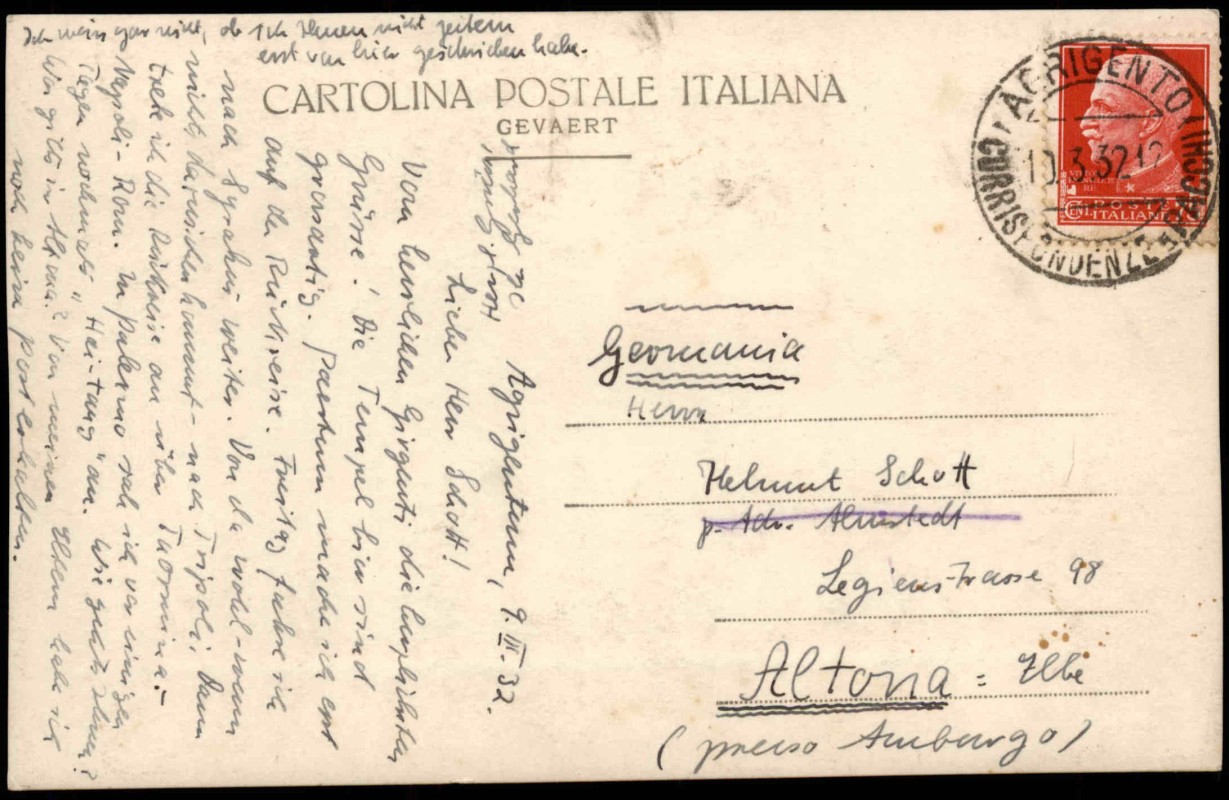 Ich weiss gar nicht, ob ich Ihnen nicht gestern
erst von hier geschrieben habe.
CARTOLINA POSTALE ITALIANA
GEVAERT
AGRIGENTO
CORRISPONDENZE
10.3.32
POSTE
ITALIANE
CENT.
Agrigentum, 9. III. 32.
Lieber Herr Schott!
Vom herrlichen Girgenti die herzlichsten
Grüsse! Die Tempel hier sind
grossartig. Paestum mache ich erst
auf der Rückreise. Freitag fahre ich
nach Syrakus weiter. Von da wohl – wenn
nichts dazwischenkommt – nach Tripoli. Dann
trete ich die Rückreise an über Taormina –
Neapoli – Rom. In Palermo sah ich vor einigen
Tagen nochmals "Hei-Tang" an. Wie geht's Ihnen?
Wie gehts in Altona? Von meinen Eltern habe ich
noch keine Post erhalten.
Germania
Herrn
Helmut Schott
p. Adr. Almstedt
Legienstrasse 98
Altona = Elbe
(presso Amburgo)